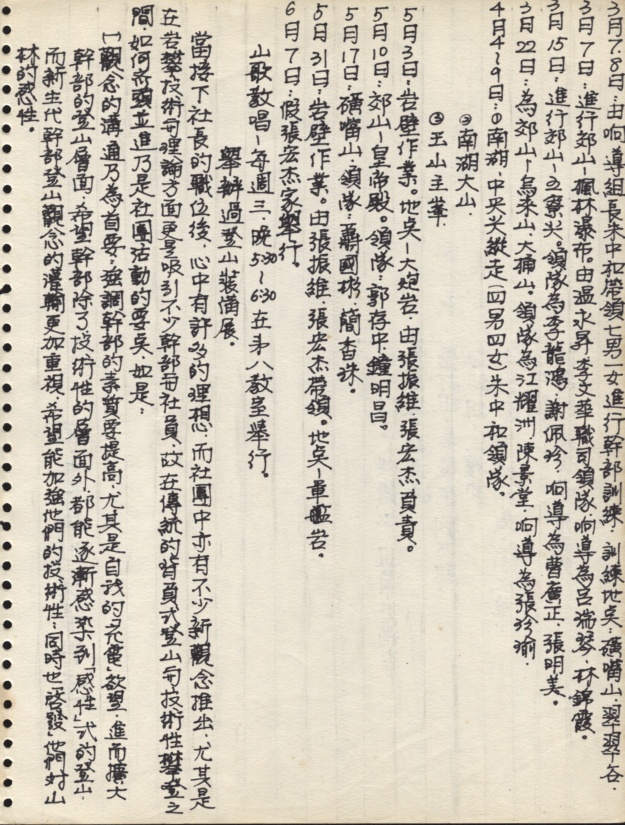 3月7.8日:由响導組長朱中和帶領七男一女進行幹部訓練.訓練地奌:磺嘴山.翠翠谷.
3月7日:進行郊山—楓林瀑布.由温永昇.李文華職司領隊响導為呂湍琴.林錦霞。
3月15日:進行郊山—五寮尖。領隊為李龍鴻.謝佩玲.响導為曹廣正.張明美。
3月22日:為郊山—烏來山大桶山。領隊為江耀洲.陳景堂.响導為張玲瑜.
4月4~9日:①南湖.中央尖縱走(四男四女)朱中和領隊。
②南湖大山.
③玉山主峯.
5月3日:岩壁作業。地奌—大炮岩.由張振維.張宏杰負責。
5月10日:郊山—皇帝殿。領隊:郭存中.鐘明昌。
5月17日:磺嘴山.領隊:蕭國彬.簡香珠.
5月31日:岩壁作業。由張振維.張宏杰帶領。地奌—軍艦岩。
6月7日:假張宏杰家舉行。
山歌教唱—每週三.晚5:30~6:30在第八教室舉行。
舉辦過登山裝備展。
當接下社長的職位後.心中有許多的理想.而社團中亦有不少新觀念推出.尤其是
在岩攀技術和理論方面更是吸引不少幹部和社員.故在傳統的背負式登山与技術性攀登之
間.如何齐頭並進乃是社團活動的要奌.如是:
(一)觀念的溝通乃為首要:強調幹部的素質要提高.尤其是自我的「充電」欲望.進而擴大
幹部的登山層面.希望幹部除了技術性的層面外.都能逐漸感染到「感性」式的登山.
而新生代幹部登山觀念的灌輸更加重視.希望能加強他們的技術性.同時也「啓發」他們对山
林的感性。